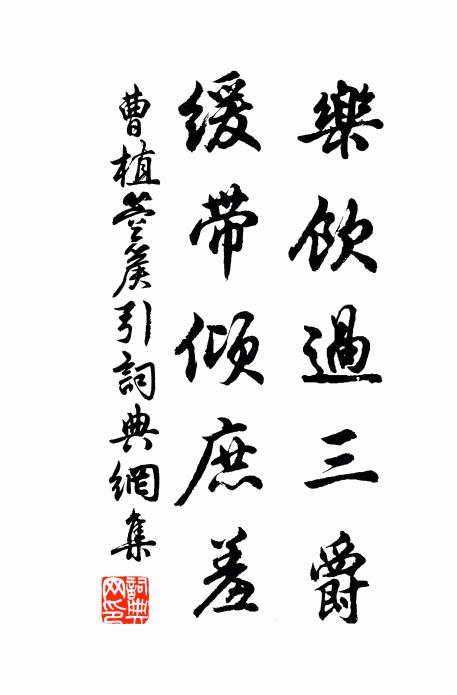 樂飲過三爵
緩帶傾庶羞
曹植箜篌引詞典網集
詞典網印